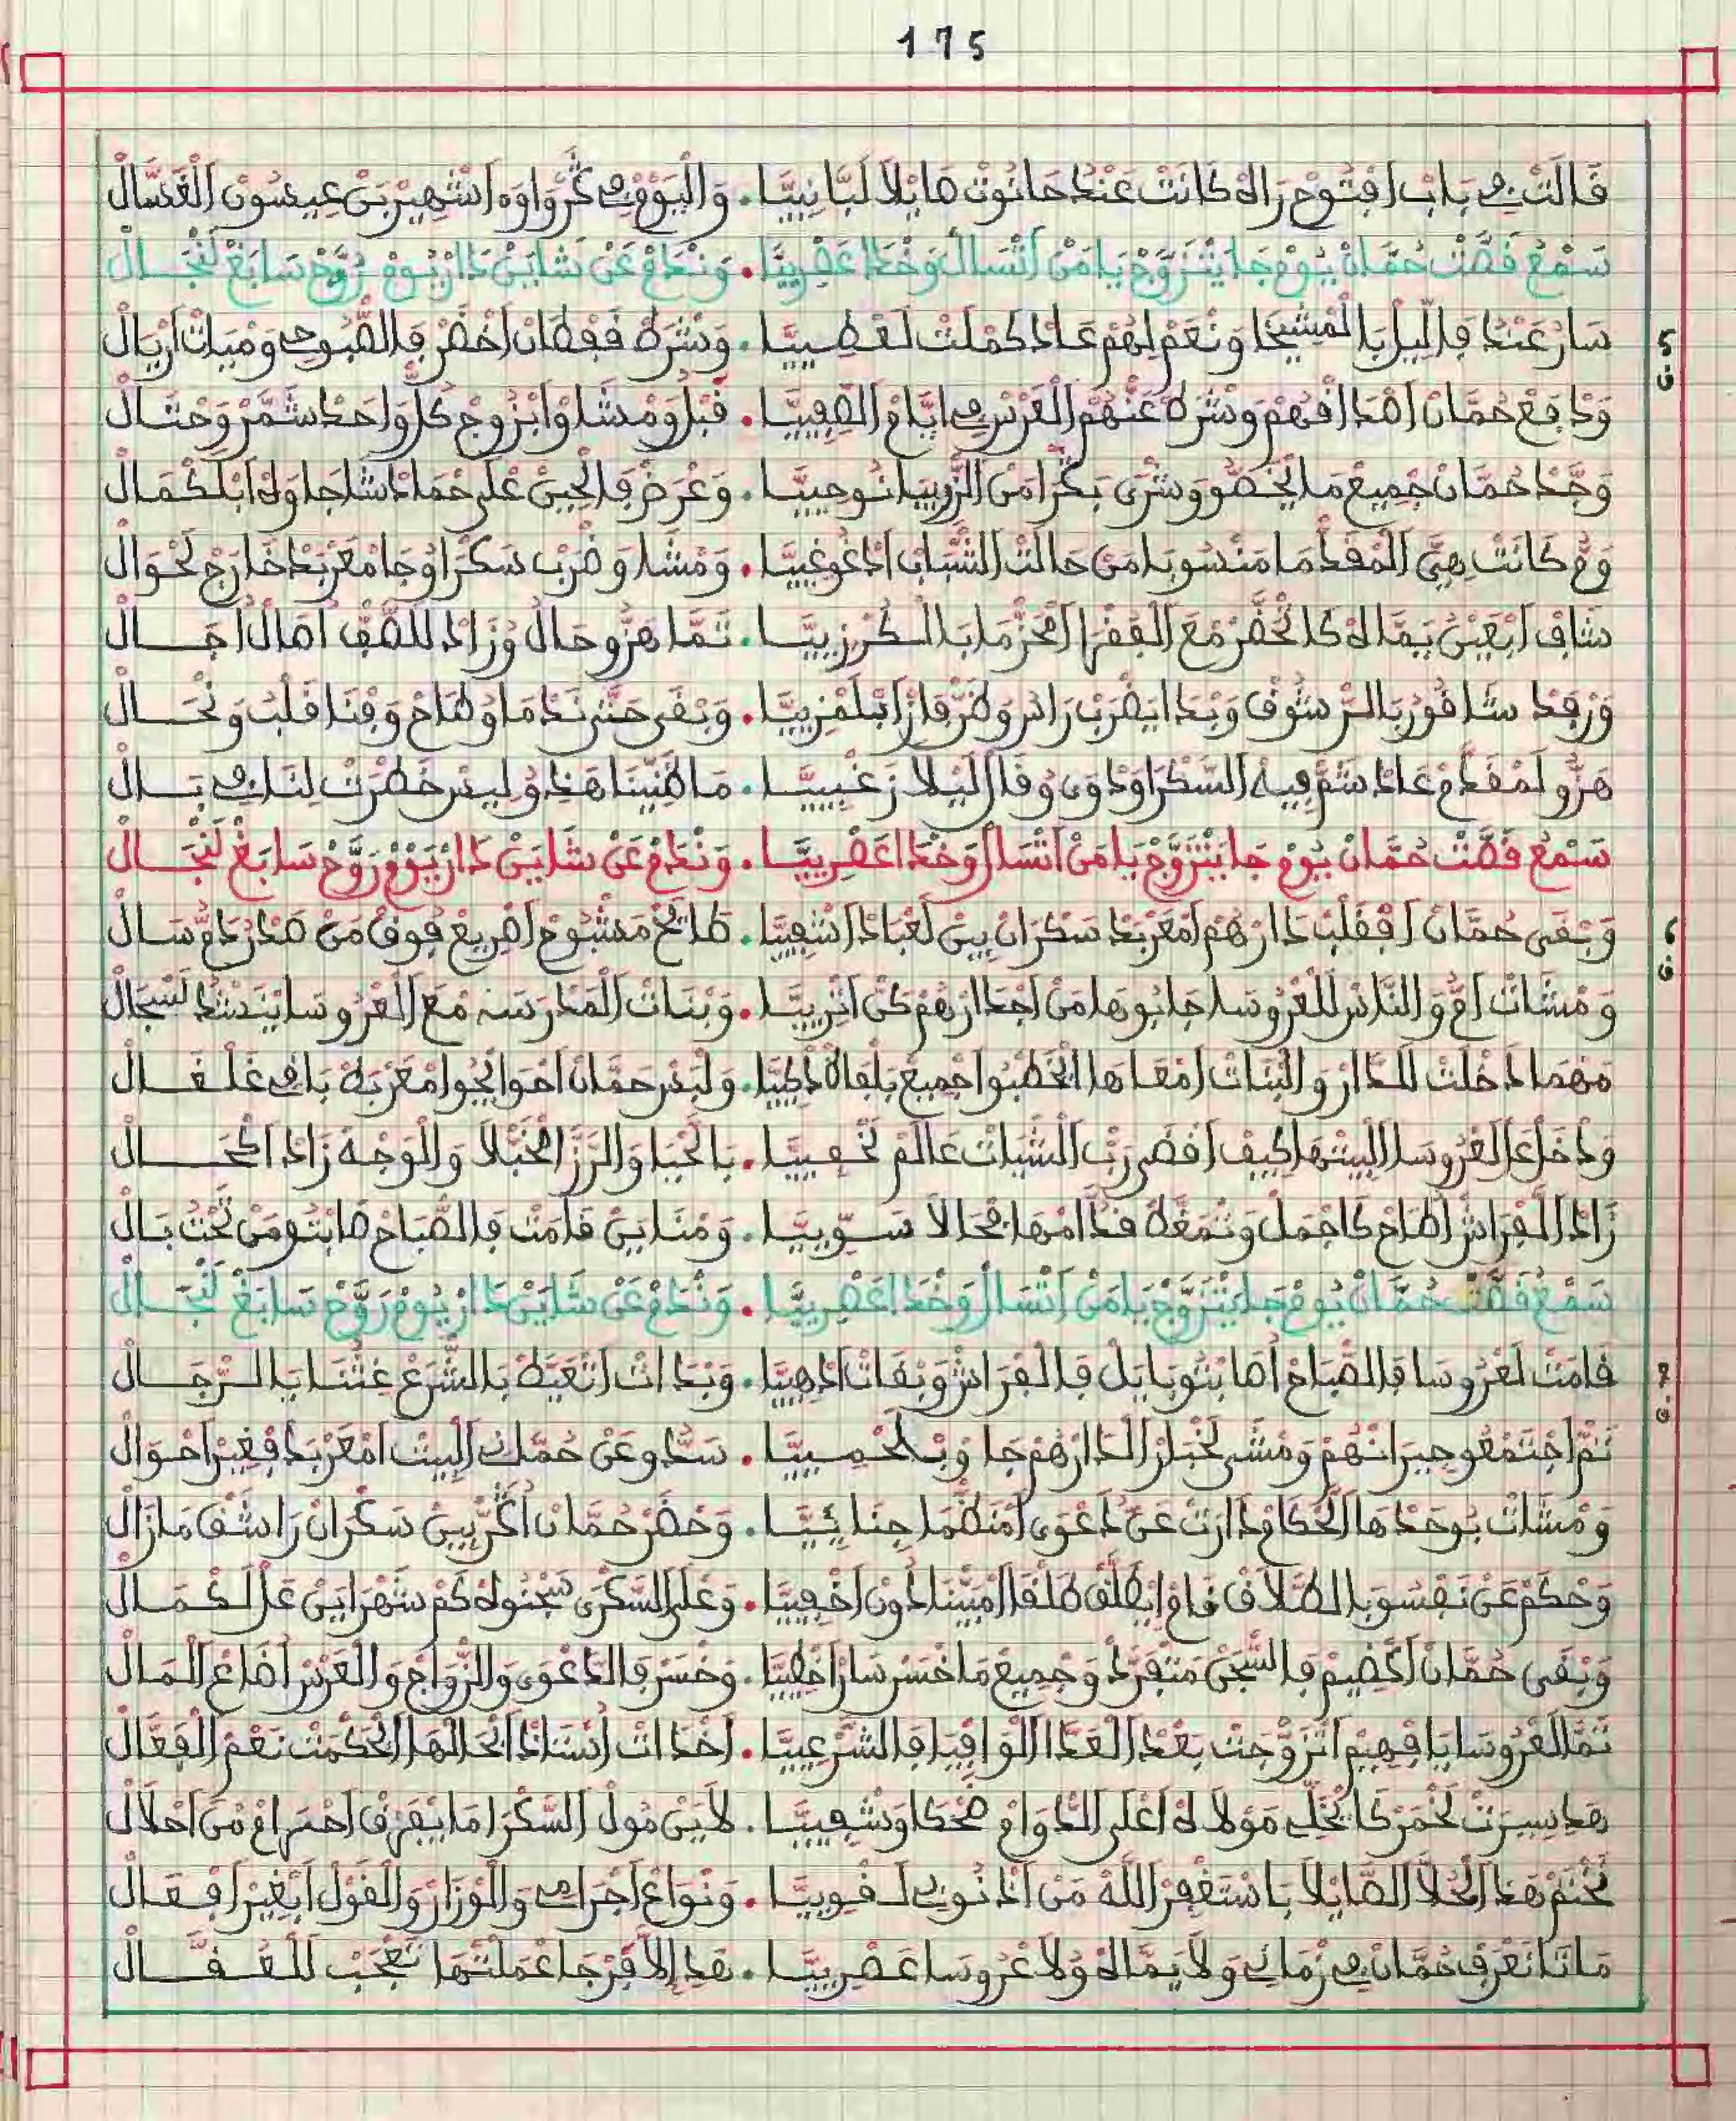 175
قَالَتْ فِي بَابْ افْتُوحْ رَاهْ كَانَتْ عَنْدُ حَانُوتْ هَايْلَا لَبَّانِيَّا . وَالْيُوْمْ فِي كْرُوَاوَه اشْهِيرْ بَنْ عِيسُونْ الْغَسَّالْ
سَمْعْ قَصَّتْ حُمَّانْ يُومْ جَا يَتْزَوَّجْ يَا مَنْ اتْسَالْ وَخْدَا عَصْرِيَّا . وَنْدَمْ عَنْ شَايَنْ دَارْ يُومْ رَوَّحْ سَابَغْ لَنْجَالْ
5 ف
سَارْ عَنْدُ فَاللِّيلْ بَا الْمْشِيخَا وَنْعَمْ لِهُمْ عَادْ كَمْلَتْ لَعْطِيَّا . وَشْرَطْ قَفْطَانْ اخْضَرْ فَالصُّبُوحِي وَمْيَاتْ ارْيَالْ
وَدْفَعْ حُمَّانْ اصْدَاقْهُمْ وَشْرَطْ عَنْهُمْ الْعَرْسْ فِي ايَّامْ الصِّيفِيَّا . قَبْلُو وَمْشَاوْا بْزُوجْ كُلْ وَاحَدْ شَمَّرْ وَحْتَالْ
وَجَّدْ حُمَّانْ جْمِيعْ مَا يْخَصُّو وَشْرَى بَكْرَا مَنْ الزْرِيبَا نُوحِيَّا . وَعْرَضْ فَالْحِينْ عْلَى حْمَادْشَا جَاوْهْ ابْلَكْمَالْ
وَمُّ كَانَتْ هِيَ الْمْقَدْمَا مَنْسُوبَا مَنْ حَالَتْ الشْبَابْ ادْغُوغِيَّا . وَمْشَا وَضْرَبْ سَكْرَا وُجَا مْعَرْبَدْ خَارَجْ لَحْوَالْ
شَافْ ابْعَيْنُ يَمَّاهْ كَا تْحَضَّرْ مْعَ الْفُقْرَا امْحَزْمَا بَالْكَرْزِيَّا . تَمَّا هَزُّو حَالْ وُزَادْ لَلصَّفْ اطَالْ اجَالْ
وَرْفَدْ شَاقُورْ بَالرْشُوقْ وَبْدَا يَضْرَبْ رَاسُ وَطْرَفْ ازْ ابْلَمْزِيَّا . وَبْقَى حَتَّى نَدْمَا وُطَاحْ وَفْنَا قَلْبُ وَنْحَالْ
هَزُّو لَمْقَدَّمْ عَادْ شَمْ فِيهْ السَّكْرَا وَدْوَى وُقَالْ لِيلَا زَغْبِيَّا . مَا ظَنِّينَا هَذُو لِيسْ خَطْرَتْ لَنَا فِي بَالْ
سَمْعْ قَصَّتْ حُمَّانْ يُومْ جَا يَتْزَوَّجْ يَا مَنْ اتْسَالْ وَخْدَا عَصْرِيَّا . وَنْدَمْ عَنْ شَايَنْ دَارْ يُومْ رَوَّحْ سَابَغْ لَنْجَالْ
6 ف
وَبْقَى حُمَّانْ افْقَلْبْ دَارْهُمْ امْعَرْبَدْ سَكْرَانْ بِينْ لَعْبَادْ اشْفِيَّا . طَايَحْ مَشْبُوحْ اصْرِيعْ فُوقْ مَنْ صَدْرُ دَمُّ سَالْ
وَمْشَاتْ امُّ وَالنَّاسْ لَلْعْرُوسَا جَابُوهَا مَنْ اجْدَارْهُمْ كَنْ اتْرِيَّا . وَبْنَاتْ الْمَدْرَسَه مْعَ الْعْرُوسَا يَنْشْدْ لَسْجَالْ
مَهْمَا دَخْلَتْ لَلدَّارْ وَالْبْنَاتْ امْعَاهَا الْخَطْبُوا جْمِيعْ بَلْغَاهْ ادْكِيَّا . وَلْبَسْ حَمَّانْ احْوَايْجُو امْعَرْبَطْ بَاقِي غَلْفَالْ
وَدْخَلْ عَالْعْرُوسَا الْبِيتْهَا كِيفْ اقْضَى رَبْ الشْيَاتْ عَالَمْ تَخْفِيَّا . بَالْحْيَا وَالرَّزْ الْخَبْلَا وَالْوَجْهْ زَادْ اكْحَالْ
زَادْ الْلَفْرَاشْ اطَاحْ كَا جْمَلْ وَتْمَغَّطْ قُدَّامْهَا فْحَالَا سَوِّيَّا . وَمْنَايَنْ قَامَتْ فَالصْبَاحْ صَابْتُو مَنْ تَحْتُ بَالْ
سَمْعْ قَصَّتْ حُمَّانْ يُومْ جَا يَتْزَوَّجْ يَا مَنْ اتْسَالْ وَخْدَا عَصْرِيَّا . وَنْدَمْ عَنْ شَايَنْ دَارْ يُومْ رَوَّحْ سَابَغْ لَنْجَالْ
7 ف
قَامَتْ لَعْرُوسَا فَالصْبَاحْ اصَابْتُو بَايَلْ فَالْفْرَاشْ وَبْقَاتْ ادْهِيَّا . وَبْدَاتْ اتْعَيَّطْ بَالشْرَعْ غَثْنَا يَا الرْجَالْ
تَمْ اجْتَمْعُو جِيرَانْهُمْ وَمْشَى لَخْبَارْ الدَارْهُمْ جَاوْ بَلْحْمِيَّا . سَدُّو عَنْ حُمَّانْ الْبِيتْ امْعَرْبَدْ فْغِيرْ احْوَالْ
وَمْشَاتْ بُوحَدْهَا الْحَكَّامْ دَارَتْ عَنُّ دَعْوَى امْنَظْمَا جِنَائِيَّا . وَحْضَرْ حُمَّانْ اكْرِيبْ سَكْرَانْ رَا شَفْ مَازَالْ
وَحْكَمْ عَنْ نَفْسُو بَالطْلَاقْ قَامْ ايْطَلَّقْ طَلْقَا امْبَيّْنَا دُونْ اخْفِيَّا . وَعْلَى السَّكْرَى سَجْنُوهْ كَمْ شَهْرَايَنْ عَلْكْمَالْ
وَبْقَى حُمَّانْ اكْضِيمْ فَالسَّجْنْ مَتْفَرَّدْ وَجْمِيعْ مَا خْسَرْ سَارْ اخْطِيَّا . وَخْسَرْ فَالدَّعْوَى وَالزْوَاجْ وَالْعَرْسْ اضَاعْ الْمَالْ
تَمَّا لَعْرُوسَا يَا فْهِيمْ اتْزَوْجَتْ بَعْدْ الْعَدَّا الْوَافِيَا فَالشَّرْعِيَّا . اخْدَاتْ اسْتَادْ انْحَالْهَا الْحَكْمَتْ نَعْمْ الْفَعَّالْ
هَدْ سِيرَتْ لَخْمَرْ كَا يْخَلِّي مَوْلَاهْ اعْلَى الدْوَامْ ضَحْكَا وَشْفِيَّا . لَايَنْ مُولْ السَّكْرَا مَا يَعْرَفْ احْرَامْ مَنْ احْلَالْ
نَخْتَمْ هَذْ الْحُلَّا الصَّايْلَا بَاسْتَغْفِرْ اللَّهْ مَنْ ادْنُوبِي لَقْوِيَّا . وَنْوَاعْ اجْرَامِي وَالْوْزَارْ وَالْقُولْ ابْغِيرْ افْعَالْ
مَانَا نَعْرَفْ حُمَّانْ فِي زْمَانِي وَلَا يَمَّاهْ وُلَا عْرُوسَا عَصْرِيَّا . هَدِ الَّا فْرَجَا عْمَلْتْهَا تَعْجَبْ لَلْعُقَّالْ